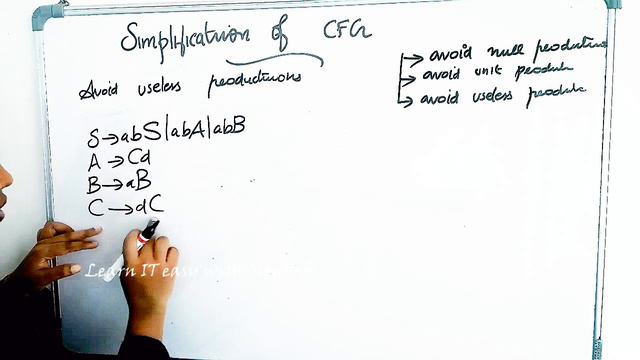 Simplification of CFG
Avoid useless productions
→ avoid null productions
→ avoid unit produ
→ avoid useless produc
S→abS|abA|abB
A→Cd
B→aB
C→dC
Learn IT easy with